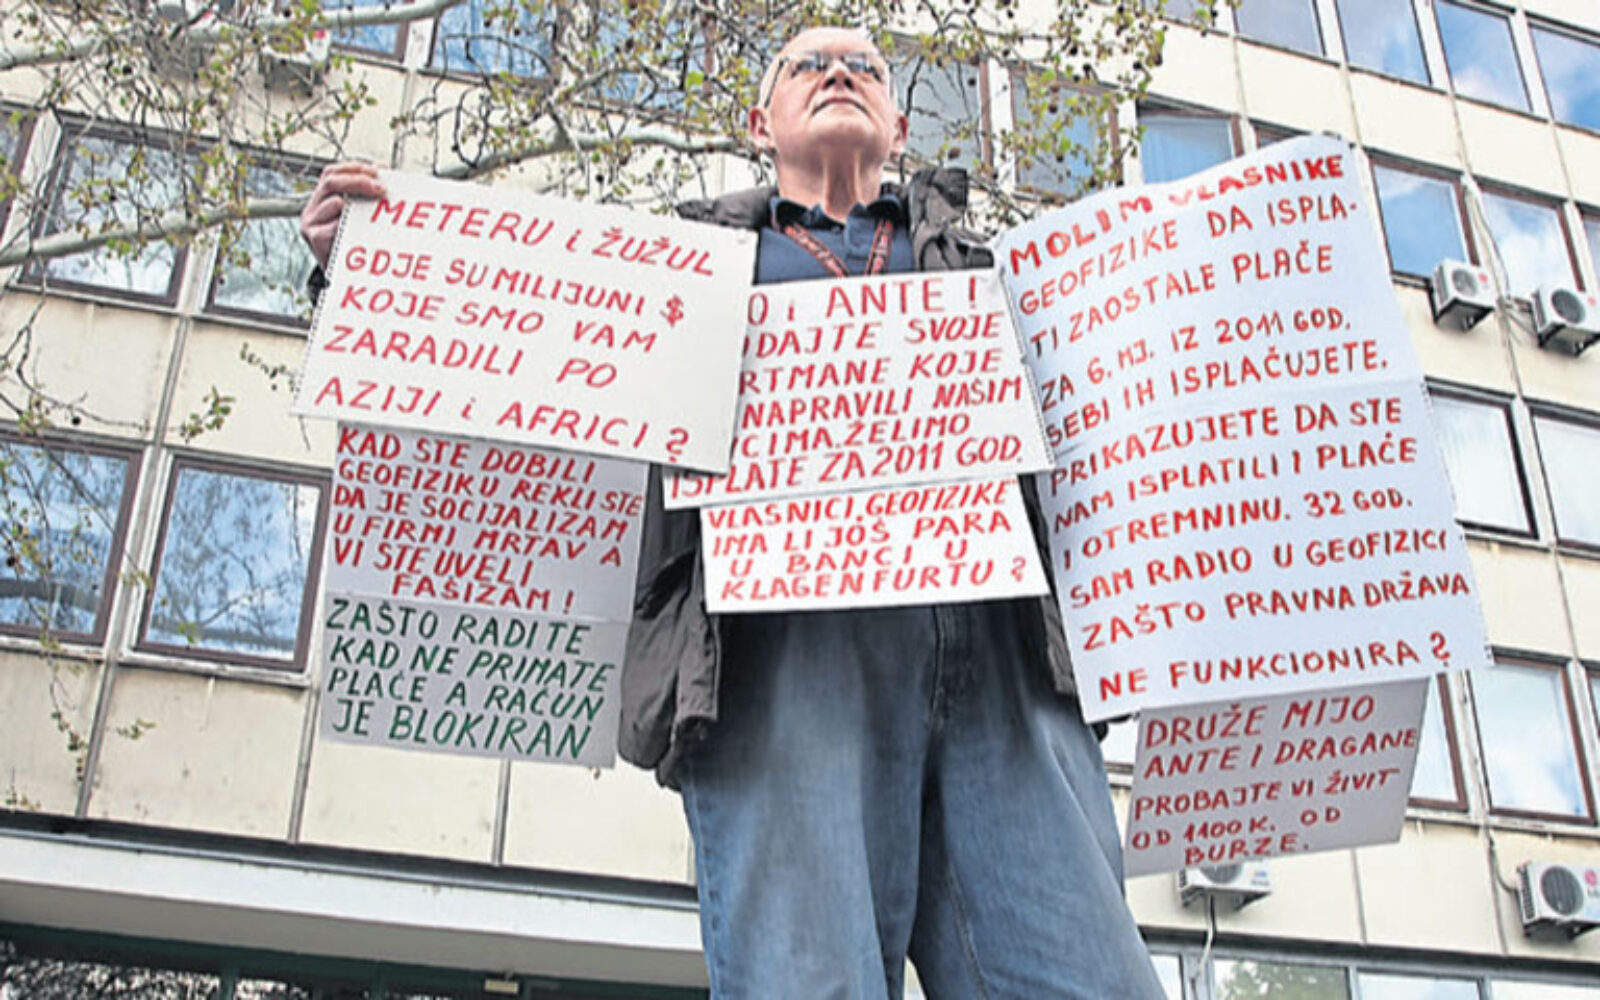 METERU i ŽUŽUL
GDJE SU MILIJUNI $
KOJE SMO VAM
ZARADILI PO
AZIJI i AFRICI?
KAD STE DOBILI
GEOFIZIKU REKLI STE
DA JE SOCIJALIZAM
U FIRMI MRTAV A
VI STE UVELI
FAŠIZAM!
ZAŠTO RADITE
KAD NE PRIMATE
PLAĆE A RAČUN
JE BLOKIRAN
O i ANTE!
DAJTE SVOJE
RTMANE KOJE
NAPRAVILI NAŠIM
CIMA. ŽELIMO
ISPLATE ZA 2011 GOD.
VLASNICI GEOFIZIKE
IMA LI JOŠ PARA
U BANCI U
KLAGENFURTU?
MOLIM VLASNIKE
GEOFIZIKE DA ISPLA-
TI ZAOSTALE PLAČE
ZA 6. MJ. IZ 2011 GOD.
SEBI IH ISPLAČUJETE,
PRIKAZUJETE DA STE
NAM ISPLATILI I PLAĆE
I OTREMNINU. 32 GOD.
SAM RADIO U GEOFIZICI
ZAŠTO PRAVNA DRŽAVA
NE FUNKCIONIRA?
DRUŽE MIJO
ANTE I DRAGANE
PROBAJTE VI ŽIVIT
OD 1100 K. OD
BURZE.